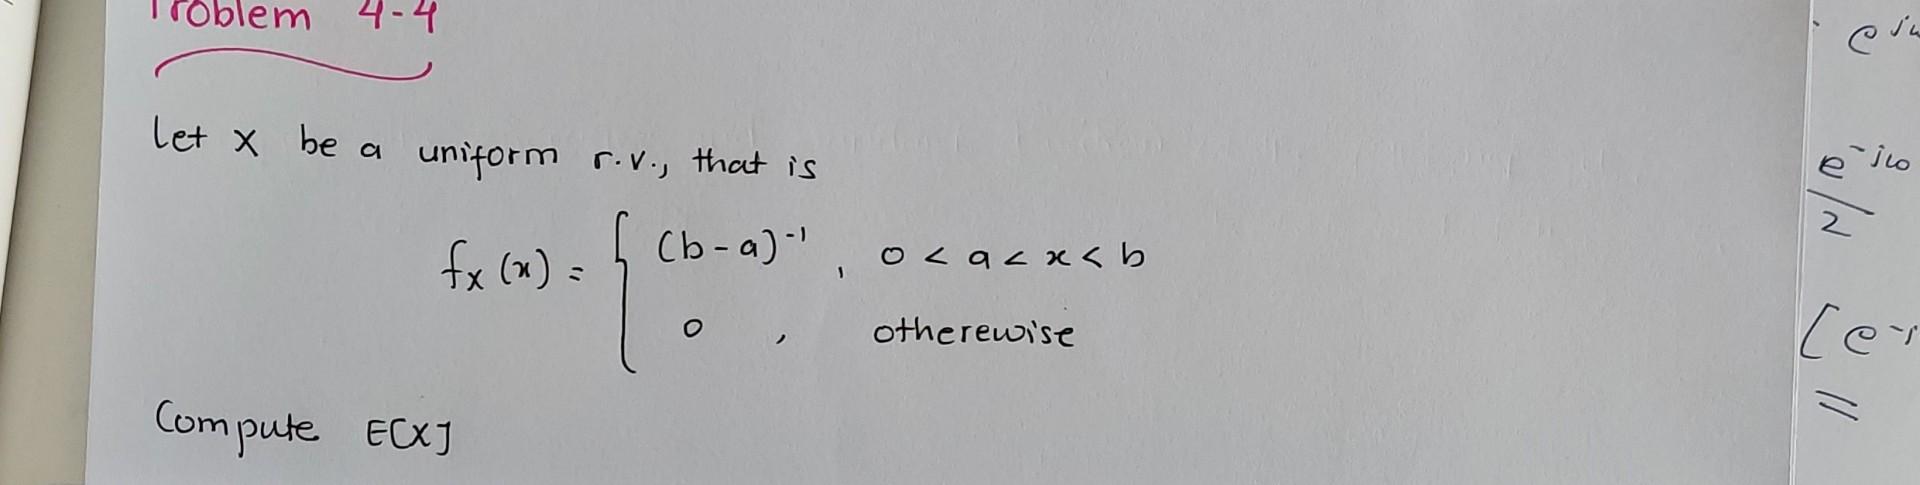 Problem 4-4
Let X be a uniform r.v., that is
fx (x) = { (b-a)⁻¹ , 0 < a < x < b
0 , otherewise
Compute E[X]
e⁻ʲω
2
=